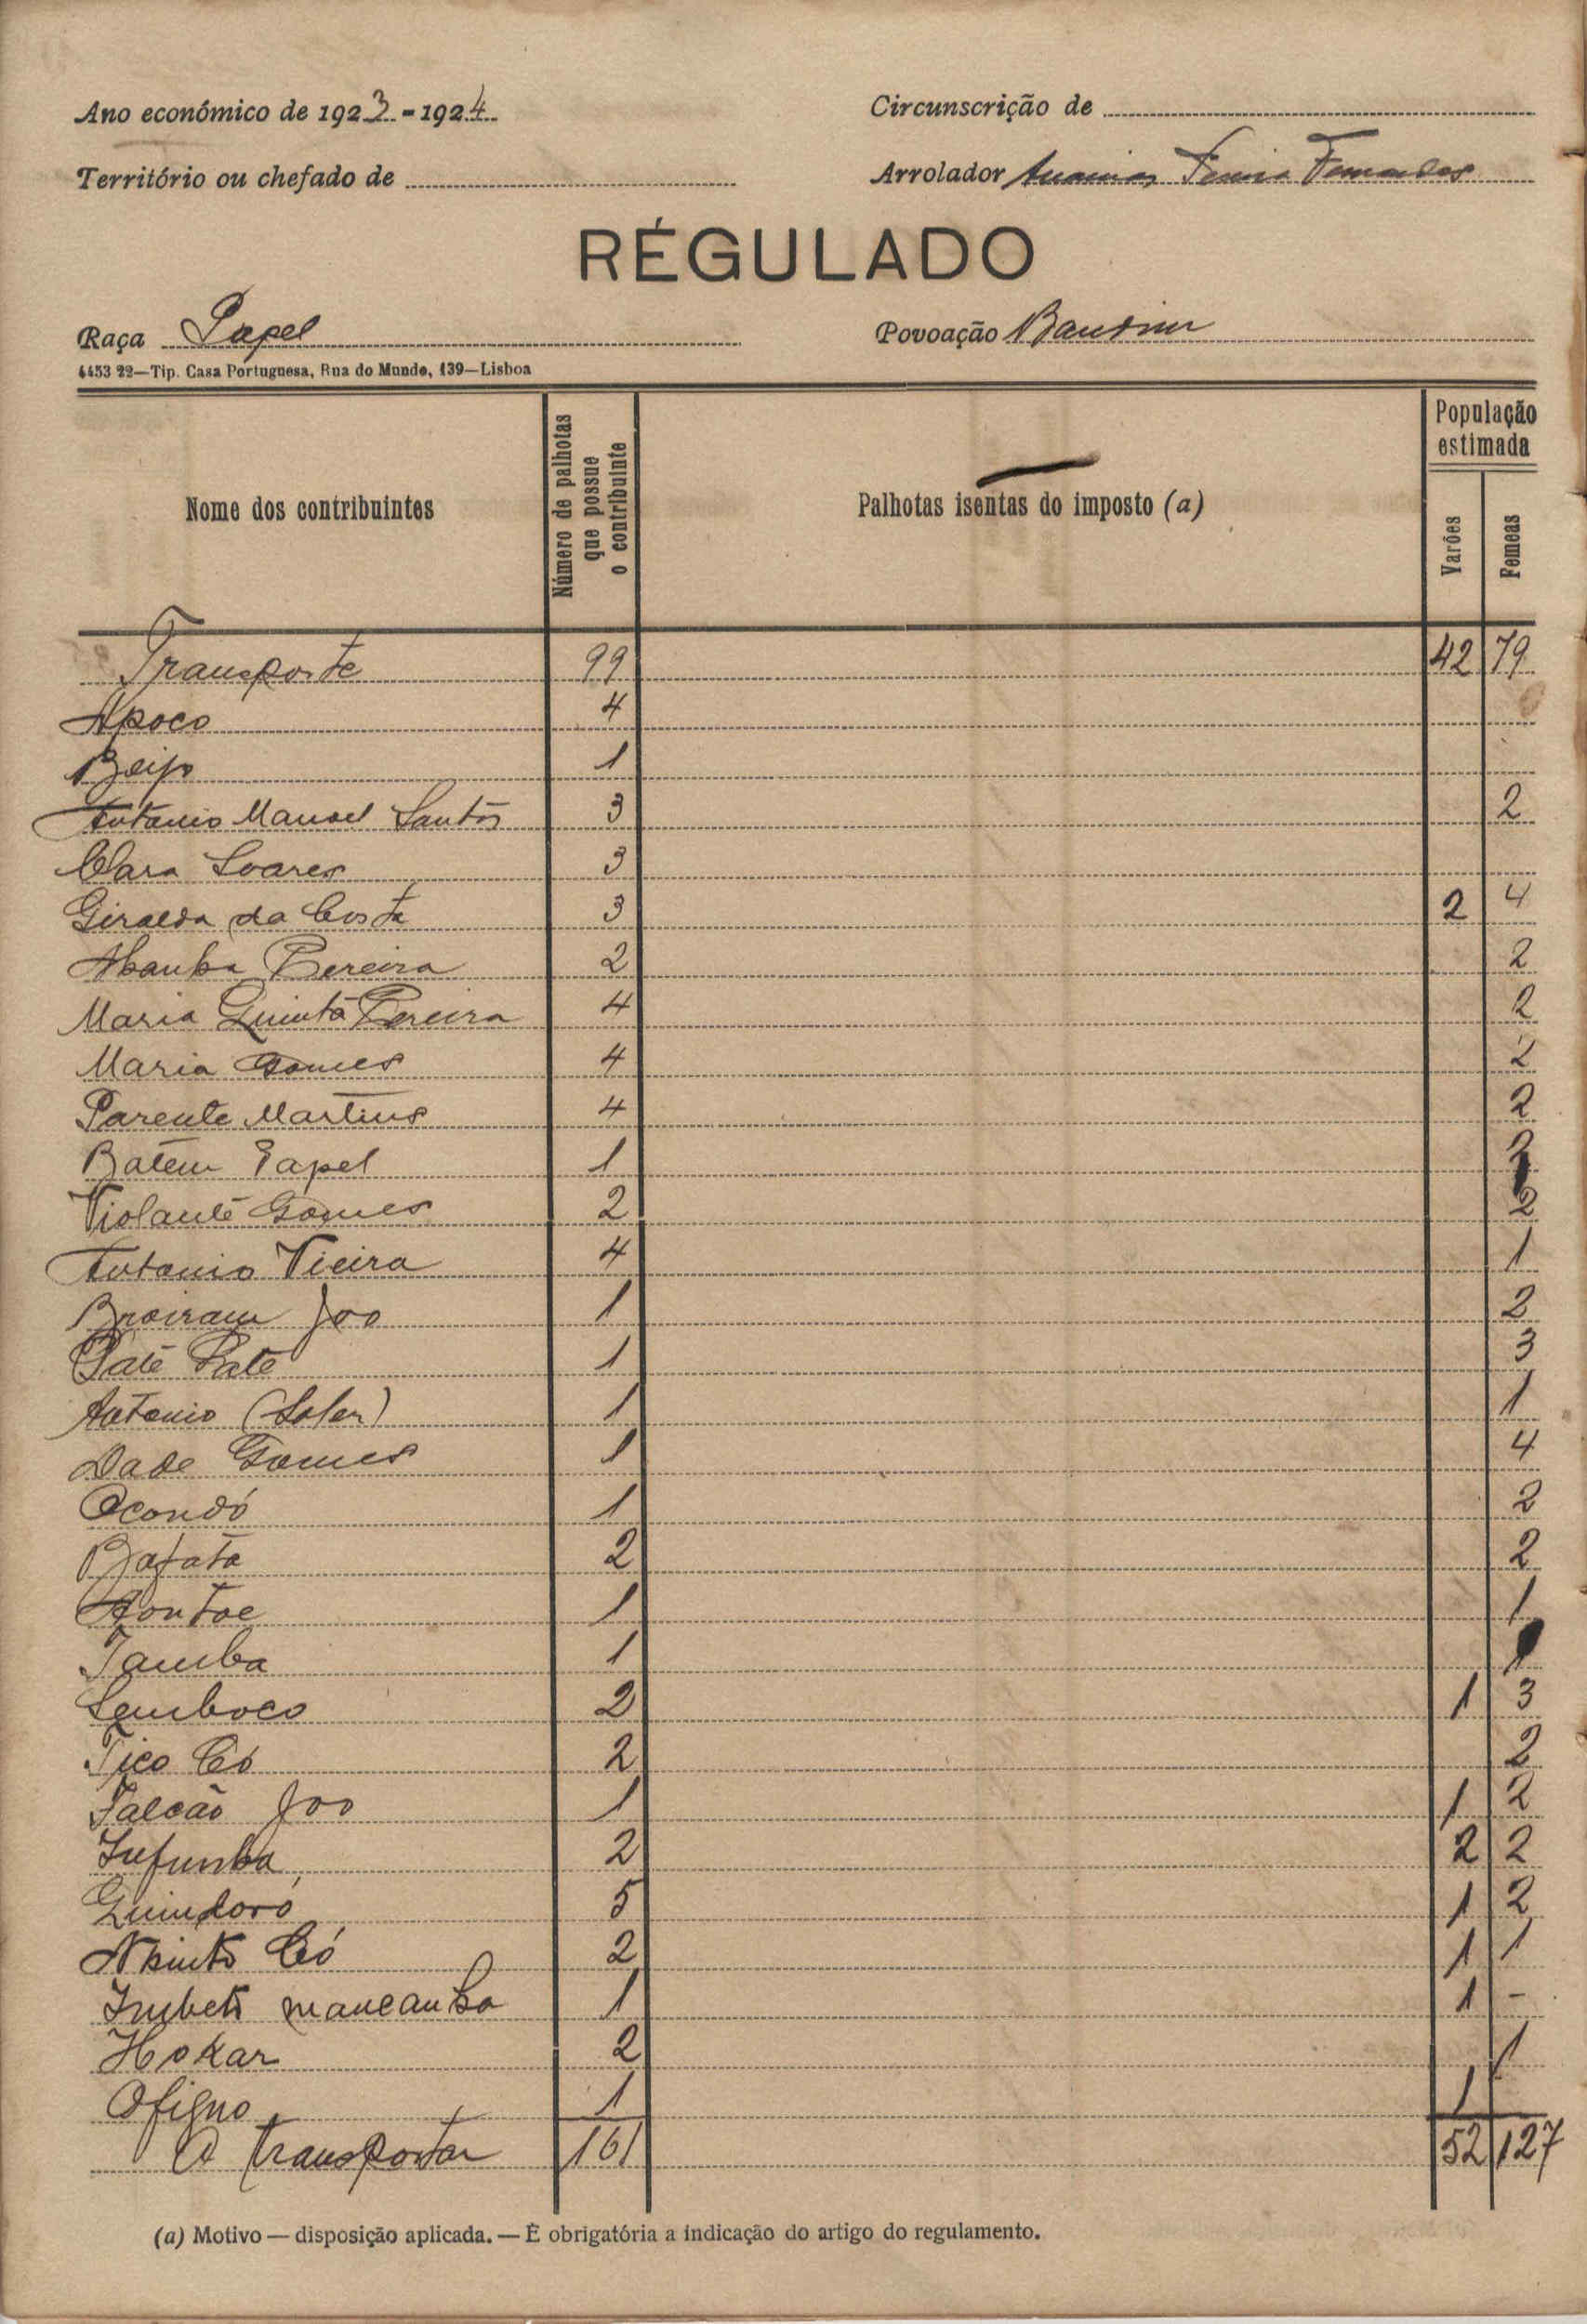 Ano económico de 1923-1924
Circunscrição de
Território ou chefado de
Arrolador Fernandes
RÉGULADO
Raça Papel
Povoação Bandim
4453 22—Tip. Casa Portuguesa, Rua do Mundo, 139—Lisboa
Nome dos contribuintes
Número de palhotas que possue o contribuinte
Palhotas isentas do imposto (a)
População estimada
Varões
Femeas
Transporte 99 42 79
Apoco 4
Beijo 1
Antonio Manoel Santos 3 2
Clara Soares 3
Giralda da Costa 3 2 4
Pereira 2 2
Maria Quinta Pereira 4 2
Maria Gomes 4 2
Parente Martins 4 2
Batem Papel 1 2
Violante Gomes 2 2
Antonio Vieira 4 1
Joo 1 2
Paté Paté 1 3
Antonio 1 1
Dade Gomes 1 4
Ocondó 1 2
Bafata 2 2
1 1
Tamba 1 1
Semboco 2 1 3
Tico Có 2 2
Falcão Joo 1 1 2
Infunha 2 2 2
Quindoró 5 1 2
Có 2 1 1
mancanha 1 1 -
Hokar 2 1
Ofigno 1 1
A transportar 161 52 127
(a) Motivo — disposição aplicada. — É obrigatória a indicação do artigo do regulamento.